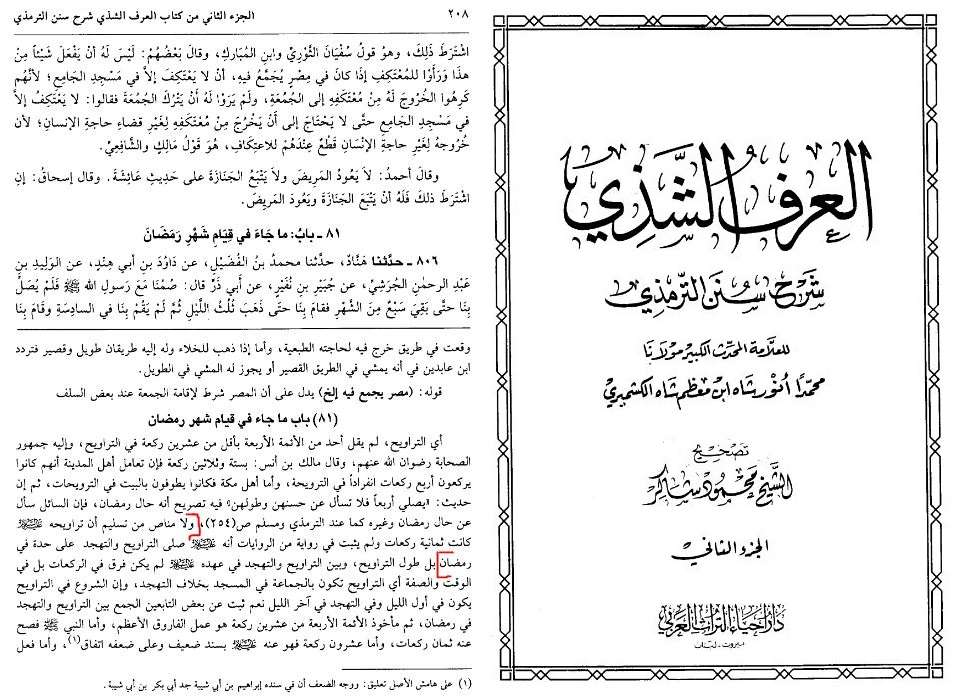 ٢٠٨ الجزء الثاني من كتاب العرف الشذي شرح سنن الترمذي
اشْتَرَطَ ذَلِكَ، وهو قولُ سُفْيَانَ الثَّوْرِيِّ وابنِ المُبَارَكِ، وقالَ بَعْضُهُمْ: لَيْسَ لَهُ أنْ يَفْعَلَ شَيْئاً مِنْ
هذَا وَرَأَوْا للمُعْتَكِفِ إذَا كانَ في مِصْرٍ يُجَمَّعُ فيهِ، أنْ لا يَعْتَكِفَ إلاَّ في مَسْجِدِ الجَامِعِ؛ لأنَّهُم
كَرِهُوا الخُرُوجَ لَهُ مِنْ مُعْتَكَفِهِ إلى الجُمُعَةِ، ولَمْ يَرَوْا لَهُ أنْ يَتْرُكَ الجُمُعَةَ فقالوا: لا يَعْتَكِفُ إلاَّ
في مَسْجِدِ الجَامعِ حتَّى لا يَحْتَاجَ إلى أَنْ يَخْرُجَ مِنْ مُعْتَكَفِهِ لِغَيْرِ قضاءِ حاجةِ الإنسانِ؛ لأن
خُرُوجهُ لِغَيْرِ حاجةِ الإنْسَانِ قَطْعٌ عِنْدَهُمْ للاعتِكافِ، هُوَ قَوْلُ مَالِكٍ والشَّافِعِيِّ.
وقالَ أحمدُ: لاَ يَعُودُ المَرِيضَ ولاَ يَتْبَعُ الجَنَازَةَ على حَدِيثِ عَائِشَةَ. وقال إسحاقُ: إنِ
اشْتَرَطَ ذلك فَلَهُ أنْ يَتْبَعَ الجَنَازَةَ ويَعُودَ المَرِيضَ.
٨١ ـ بابُ: ما جَاءَ في قِيَامِ شَهْرِ رَمَضَانَ
٨٠٦ ـ حدَّثنا هَنَّادٌ، حدَّثنا محمدُ بنُ الفُضَيْلِ، عن دَاوُدَ بنِ أبي هِنْدٍ، عن الوَلِيدِ بنِ
عَبْدِ الرحمٰنِ الجُرَشِيِّ، عن جُبَيْرِ بنِ نُفَيْرٍ، عن أَبي ذَرٍّ قال: صُمْنَا مَعَ رَسولِ الله ﷺ فَلَمْ يُصَلِّ
بِنَا حتَّى بَقِيَ سَبْعٌ مِنَ الشَّهْرِ فقامَ بِنَا حتَّى ذَهَبَ ثُلُثُ اللَّيْلِ ثُمَّ لَمْ يَقُمْ بِنَا في السادِسَةِ وقَامَ بِنَا
وقعت في طريق خرج فيه لحاجته الطبعية، وأما إذا ذهب للخلاء وله إليه طريقان طويل وقصير فتردد
ابن عابدين في أنه يمشي في الطريق القصير أو يجوز له المشي في الطويل.
قوله: (مصر يجمع فيه إلخ) يدل على أن المصر شرط لإقامة الجمعة عند بعض السلف
(٨١) باب ما جاء في قيام شهر رمضان
أي التراويح، لم يقل أحد من الأئمة الأربعة بأقل من عشرين ركعة في التراويح، وإليه جمهور
الصحابة رضوان الله عنهم، وقال مالك بن أنس: بستة وثلاثين ركعة فإن تعامل أهل المدينة أنهم كانوا
يركعون أربع ركعات انفراداً في الترويحة، وأما أهل مكة فكانوا يطوفون بالبيت في الترويحات، ثم إن
حديث: «يصلي أربعاً فلا تسأل عن حسنهن وطولهن» فيه تصريح أنه حال رمضان، فإن السائل سأل
عن حال رمضان وغيره كما عند الترمذي ومسلم ص(٢٥٤)، ولا مناص من تسليم أن تراويحه ﷺ
كانت ثمانية ركعات ولم يثبت في رواية من الروايات أنه ﷺ صلى التراويح والتهجد على حدة في
رمضان بل طول التراويح، وبين التراويح والتهجد في عهده ﷺ لم يكن فرق في الركعات بل في
الوقت والصفة أي التراويح تكون بالجماعة في المسجد بخلاف التهجد، وإن الشروع في التراويح
يكون في أول الليل وفي التهجد في آخر الليل نعم ثبت عن بعض التابعين الجمع بين التراويح والتهجد
في رمضان، ثم مأخوذ الأئمة الأربعة من عشرين ركعة هو عمل الفاروق الأعظم، وأما النبي ﷺ فصح
عنه ثمان ركعات، وأما عشرون ركعة فهو عنه ﷺ بسند ضعيف وعلى ضعفه اتفاق(١)، وأما فعل
(١) على هامش الأصل تعليق: ووجه الضعف أن في سنده إبراهيم بن أبي شيبة جد أبي بكر بن أبي شيبة.
العرف الشَّذِي
شَرْح سُنَن التِّرمذِي
للعلامة المحدث الكبير مولانا
محمد أنور شاه ابن معظم شاه الكشميري
تصْحيح
الشَّيخ محمود شاكر
الجزء الثاني
دار إحياء التراث العربي
بيروت ـ لبنان